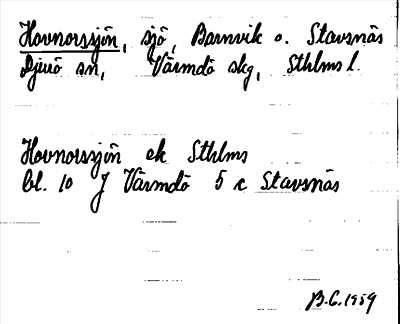 Hovnorssjön, sjö, Barnvik o. Stavsnäs
Djurö sn, Värmdö skg, Sthlms l.
Hovnorssjön ek Sthlms
bl. 10 J Värmdö 5 c Stavsnäs
B.C. 1959